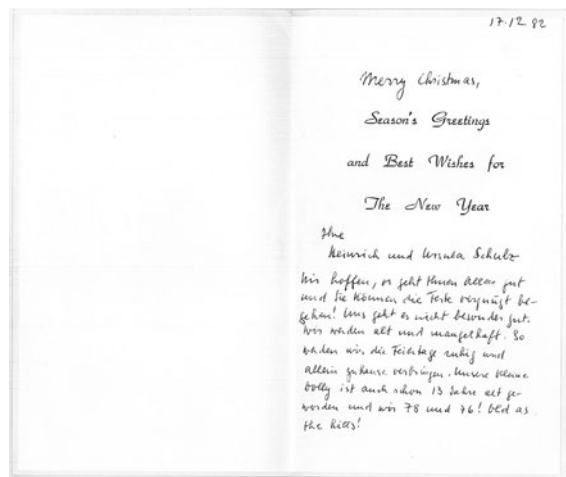 17.12 82
Merry Christmas,
Season's Greetings
and Best Wishes for
The New Year
Ihre
Heinrich und Ursula Schulz
Wir hoffen, es geht Ihnen Allen gut
und Sie können die Feste vergnügt be-
gehen! Uns geht es nicht besonders gut.
Wir werden alt und mangelhaft. So
werden wir die Feiertage ruhig und
allein zuhause verbringen. Unsere kleine
Dolly ist auch schon 13 Jahre alt ge-
worden und wir 78 und 76! Old as
the hills!